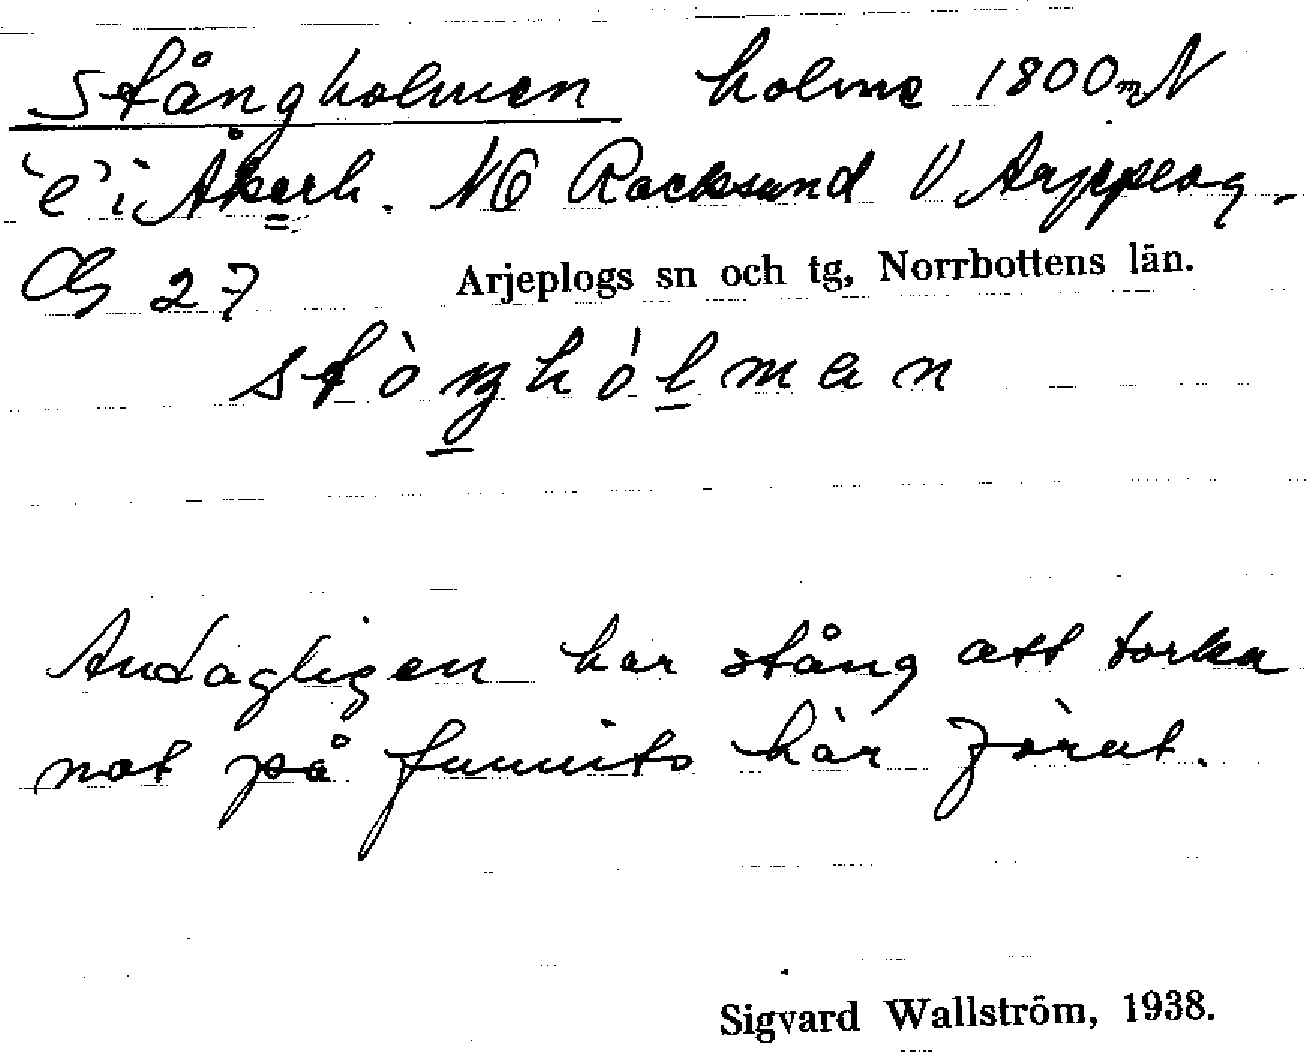 Stångholmen holme 1800 m N
"e" i Åkerh. NO Racksund V Arjeplog.
CG 27 Arjeplogs sn och tg, Norrbottens län.
stòŋhólman
Antagligen har stång att torka
not på funnits här förut.
Sigvard Wallström, 1938.